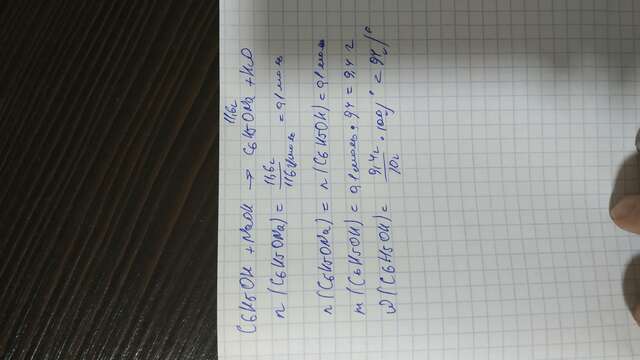 11,6г
C6H5OH + NaOH → C6H5ONa + H2O
n (C6H5ONa) = 11,6г / 116г/моль = 0,1 моль
n (C6H5ONa) = n (C6H5OH) = 0,1 моль
m (C6H5OH) = 0,1 моль • 94 = 9,4 г
W (C6H5OH) = 9,4г / 10г • 100% = 94%